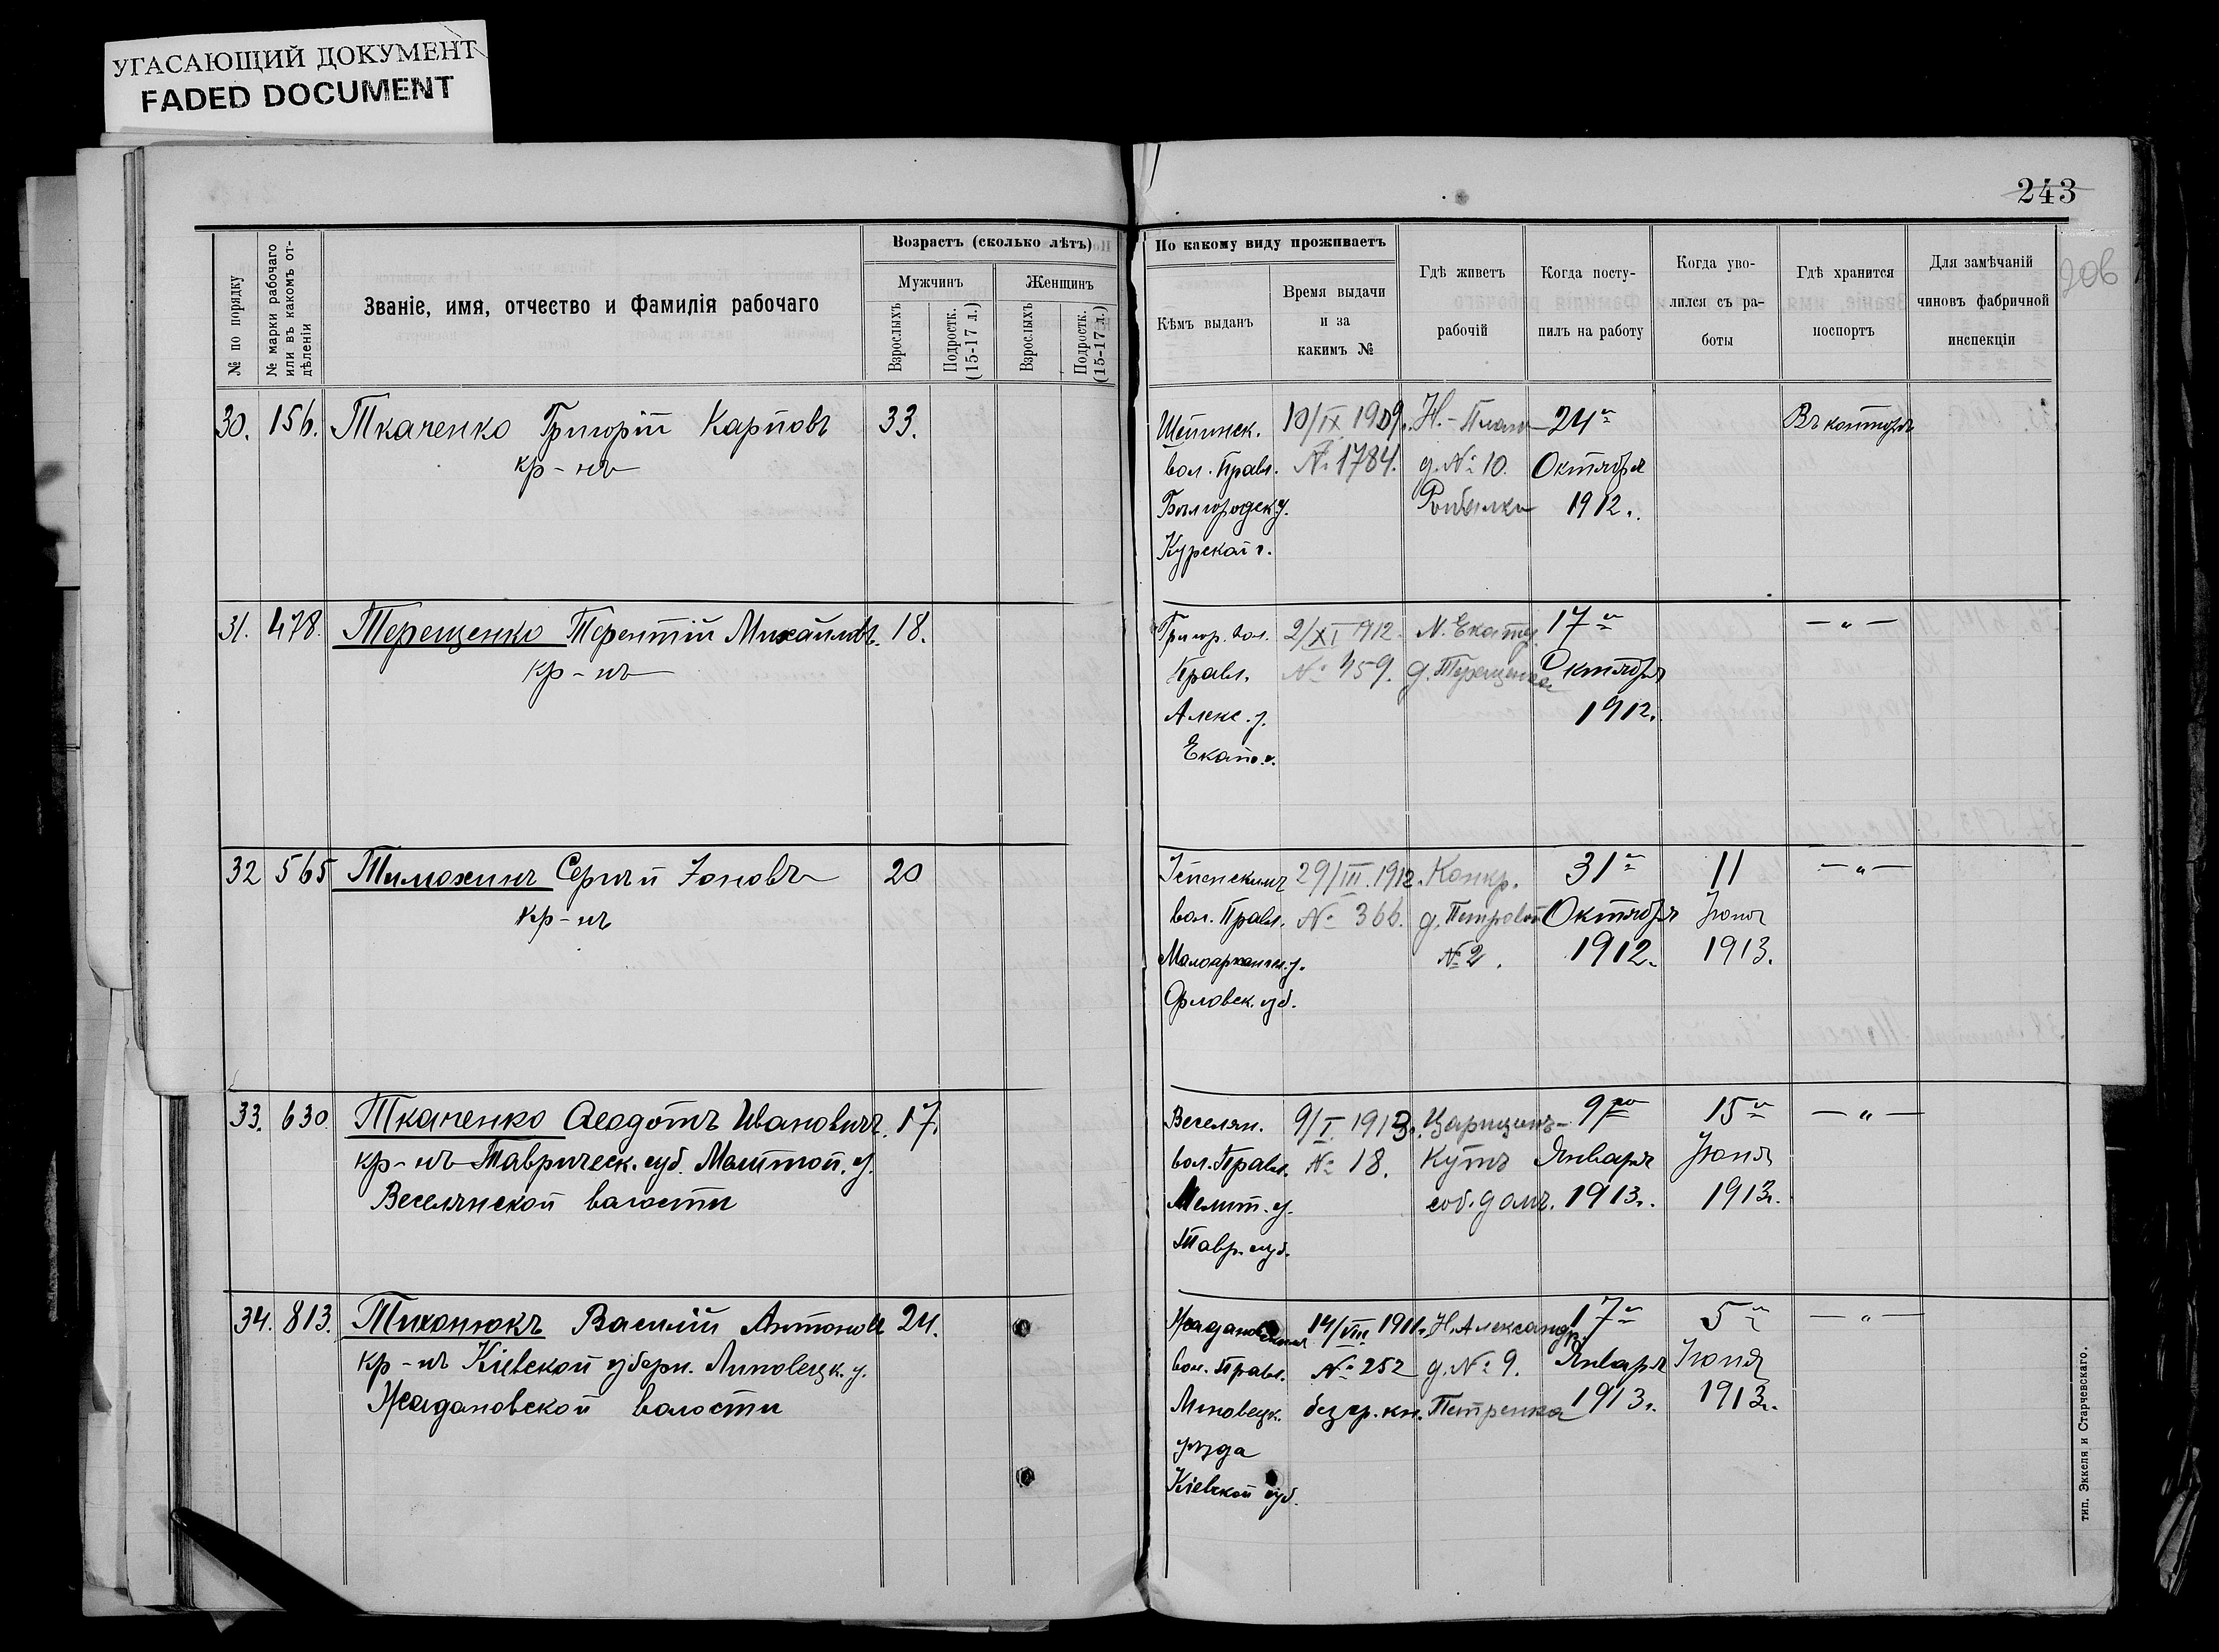 УГАСАЮЩИЙ ДОКУМЕНТ
FADED DOCUMENT
243
206
№ по порядку
№ марки рабочаго или въ какомъ отдѣленіи
Званіе, имя, отчество и фамилія рабочаго
Возрастъ (сколько лѣтъ)
Мужчинъ
Женщинъ
Взрослыхъ
Подростк. (15-17 л.)
Взрослыхъ
Подростк. (15-17 л.)
По какому виду проживаетъ
Кѣмъ выданъ
Время выдачи
и за
какимъ №
Гдѣ живетъ
рабочій
Когда посту-
пилъ на работу
Когда уво-
лился съ ра-
боты
Гдѣ хранится
поспортъ
Для замѣчаній
чиновъ фабричной
инспекціи
30. 156. Ткаченко Григорій Карповъ 33.
кр-нъ
вол. Правл.
Курской г.
10/IX 1909г.
№ 1784.
д. № 10.
24го
Октября
1912г.
Въ конторѣ
31. 478. Терещенко Терентій Михайловъ. 18.
кр-нъ
Григор. вол.
Правл.
Алекс. у.
Екато. г.
2/XI 1912.
№ 459.
д. Терещенка
17го
Октября
1912г.
— " —
32 565 Тимохинъ Сергѣй Іоновъ 20
кр-нъ
вол. Правл.
Малоархангел. у.
Орловск. губ.
29/III. 1912.
№ 366.
д. Петровой
№ 2.
31го
Октября
1912г.
11
Іюня
1913.
— " —
33. 630. Ткаченко Ѳеодотъ Ивановичъ. 17.
кр-нъ Таврическ. губ. Мелитоп. у.
Веселянской волости
Веселян.
вол. Правл.
Мелит. у.
Тавр. губ.
9/I. 1913г.
№ 18.
Царицынъ-
Кутъ
соб. домъ.
9го
Января
1913г.
15го
Іюня
1913г.
— " —
34. 813. Тихонюкъ Василій Антоновъ 24.
кр-нъ Кіевской губерн. Липовецк. у.
Жадановской волости
Жадановским
вол. Правл.
Липовецк.
уѣзда
Кіевской губ.
14/VIII 1911г.
№ 252
безср. кн.
Н. Александр.
д. № 9.
Петренка
17го
Января
1913г.
5го
Іюня
1913г.
— " —
тип. Эккеля и Старчевскаго.